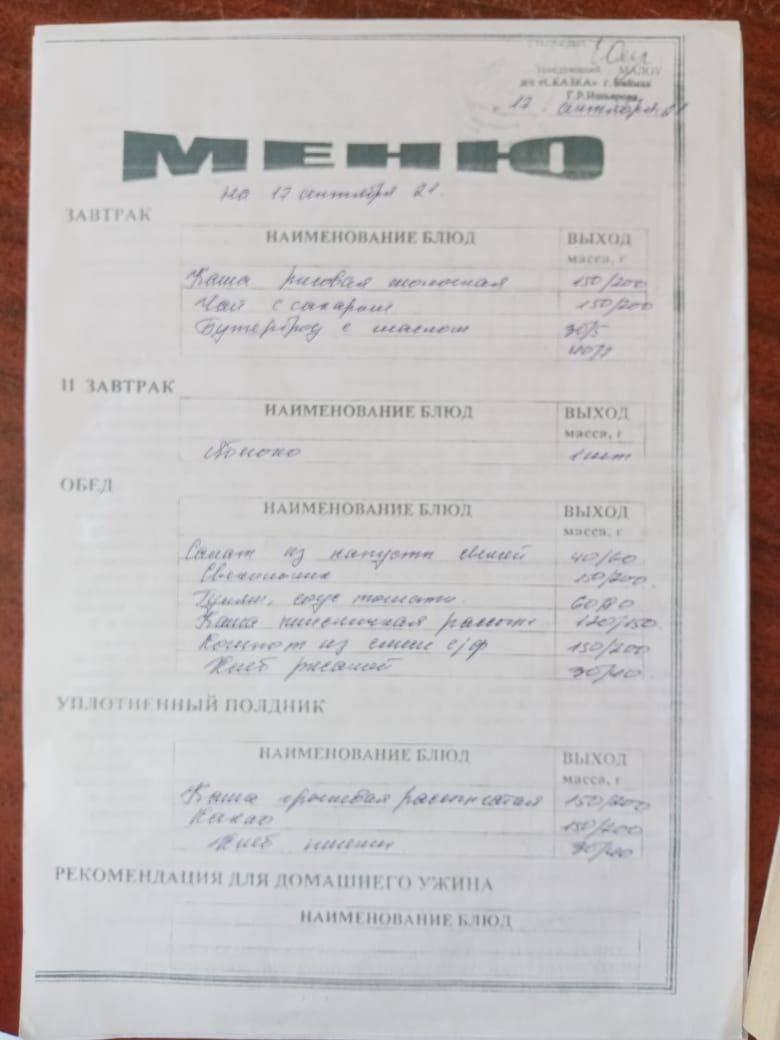 Заведующий МАДОУ
д/с «СКАЗКА» г. Баймак
17 сентября 21
МЕНЮ
на 17 сентября 21.
ЗАВТРАК
НАИМЕНОВАНИЕ БЛЮД ВЫХОД
масса, г
Каша рисовая молочная 150/200
Чай с сахаром 150/200
Бутерброд с маслом 30/5
40/7
II ЗАВТРАК
НАИМЕНОВАНИЕ БЛЮД ВЫХОД
масса, г
Яблоко 1 шт
ОБЕД
НАИМЕНОВАНИЕ БЛЮД ВЫХОД
масса, г
Салат из капусты свежей 40/60
Свекольник 150/200
Гуляш, соус томатн. 60/80
Каша пшеничная рассып 120/150.
Компот из смеси с/ф 150/200
Хлеб ржаной 30/40.
УПЛОТНЕННЫЙ ПОЛДНИК
НАИМЕНОВАНИЕ БЛЮД ВЫХОД
масса, г
Каша рассыпчатая 150/200
Какао 150/200
Хлеб пшенич 30/40
РЕКОМЕНДАЦИЯ ДЛЯ ДОМАШНЕГО УЖИНА
НАИМЕНОВАНИЕ БЛЮД